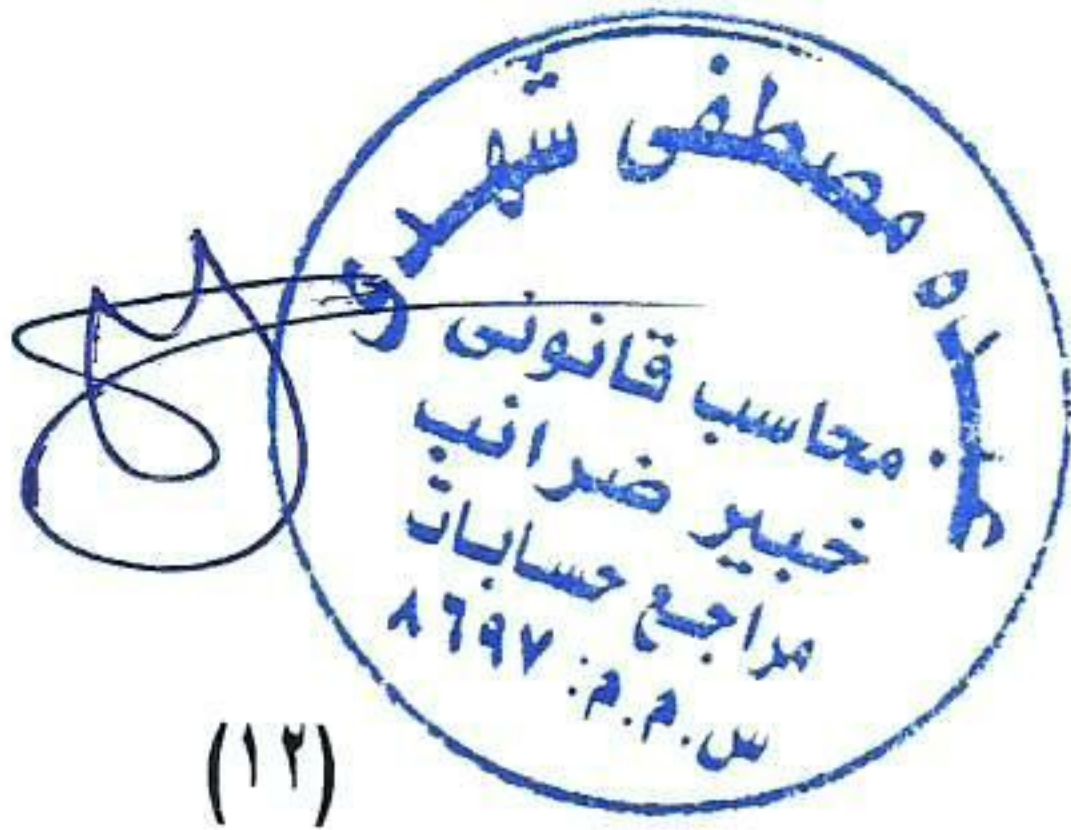 عزه مصطفى شهدى
محاسب قانونى
خبير ضرائب
مراجع حسابات
س.م.م: ٨٦٩٧
(١٢)